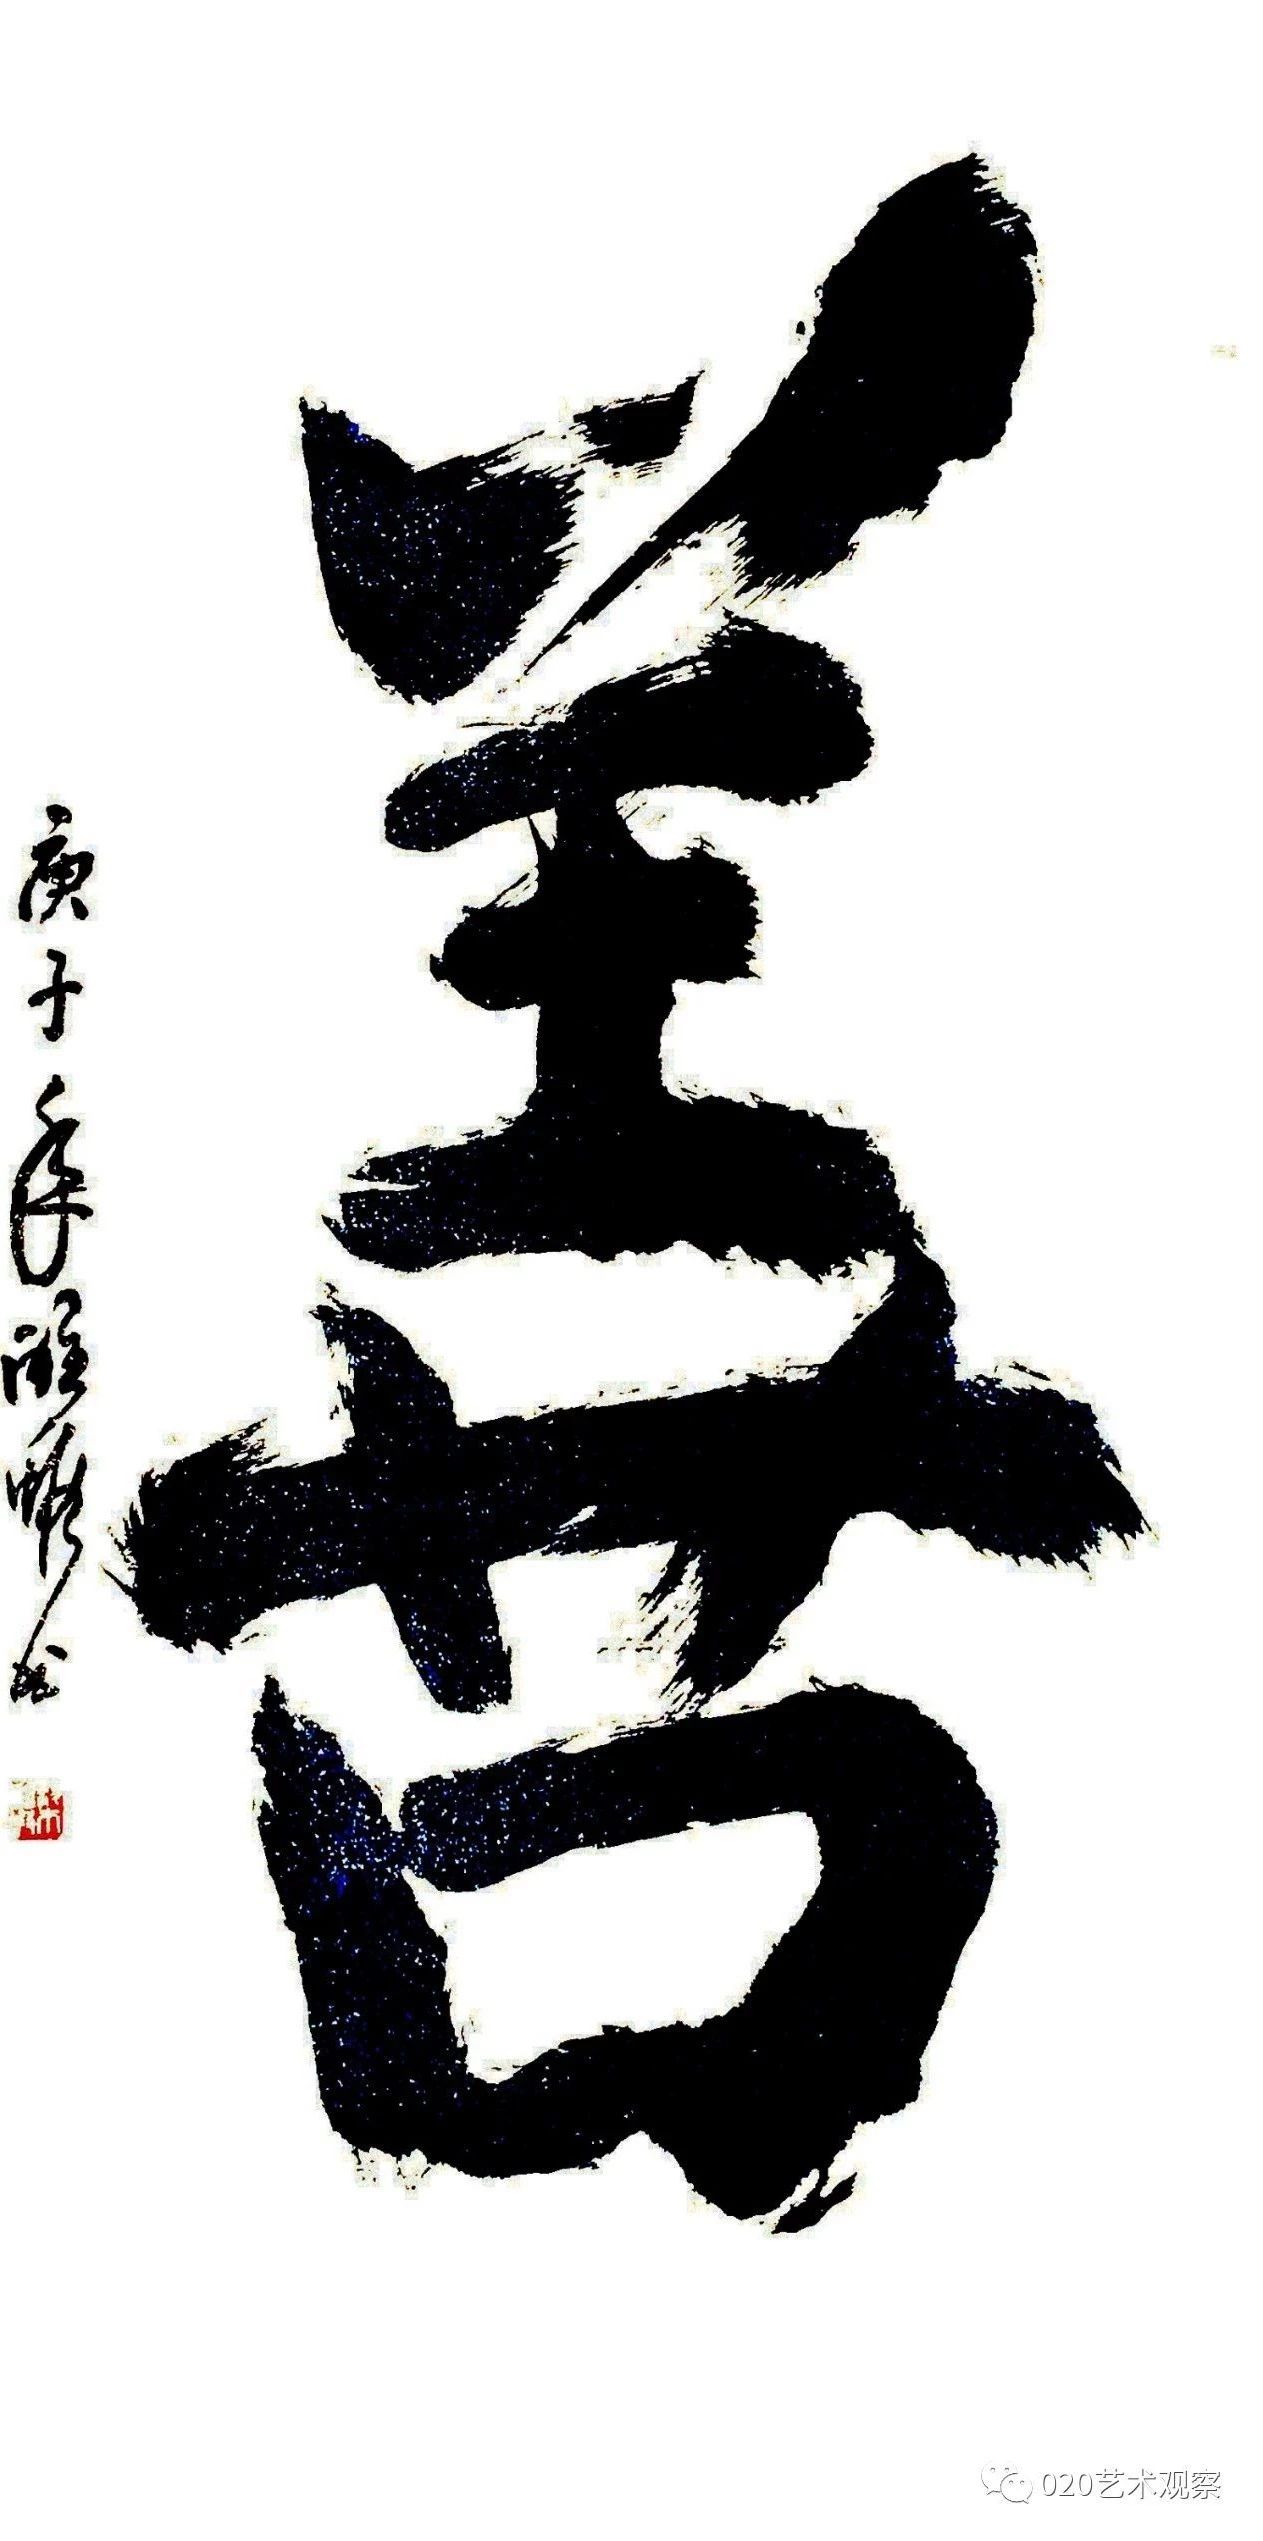 善
庚子年
020艺术观察